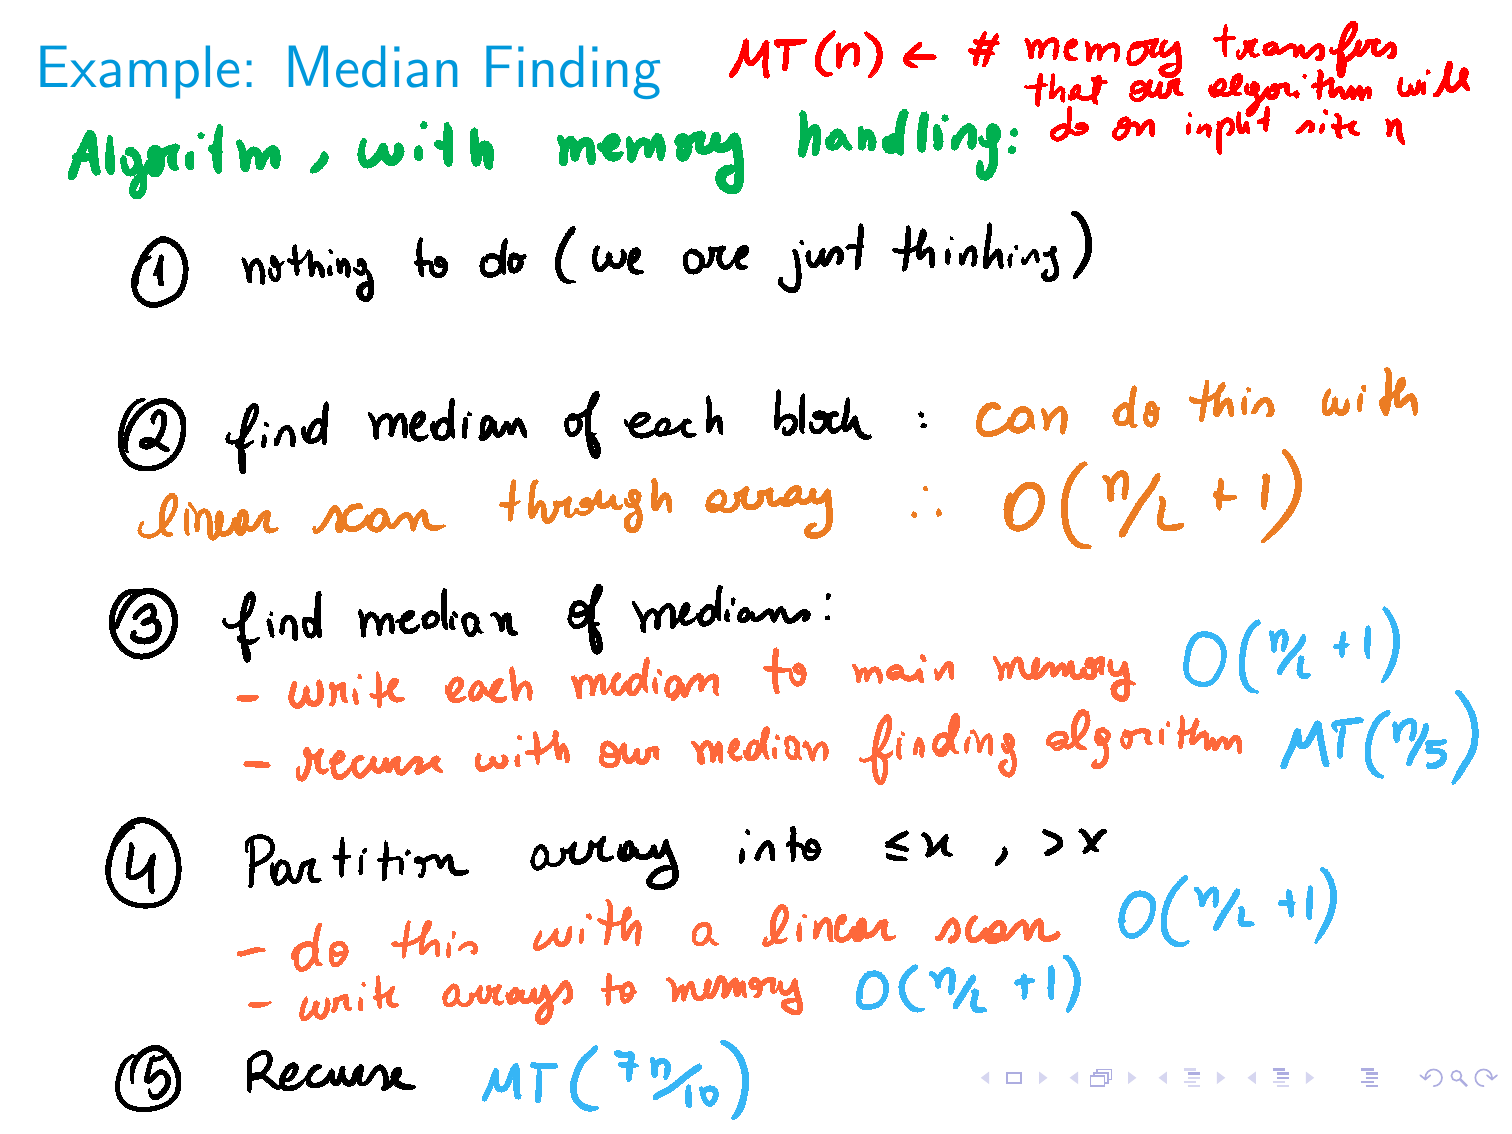 Example: Median Finding
MT(n) ← # memory transfers
that our algorithm will
do on input site n
Algoritm, with memory handling:
① nothing to do (we are just thinking)
② find median of each block : can do this with
linear scan through array ∴ O(n/L + 1)
③ find median of medians:
- write each median to main memory O(n/L + 1)
- recurse with our median finding algorithm MT(n/5)
④ Partition array into ≤x , >x
- do this with a linear scan O(n/L + 1)
- write arrays to memory O(n/L + 1)
⑤ Recurse MT(7n/10)